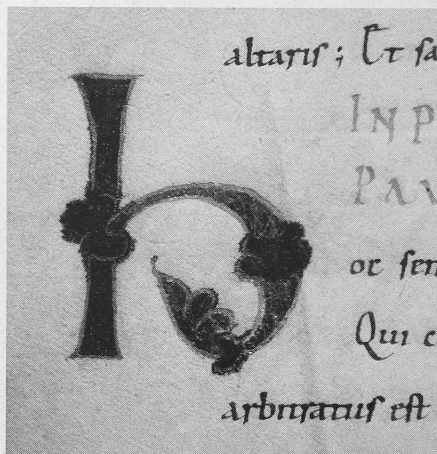 altaris; Et sa
IN P
PAU
hoc sen
Qui c
arbitratus est